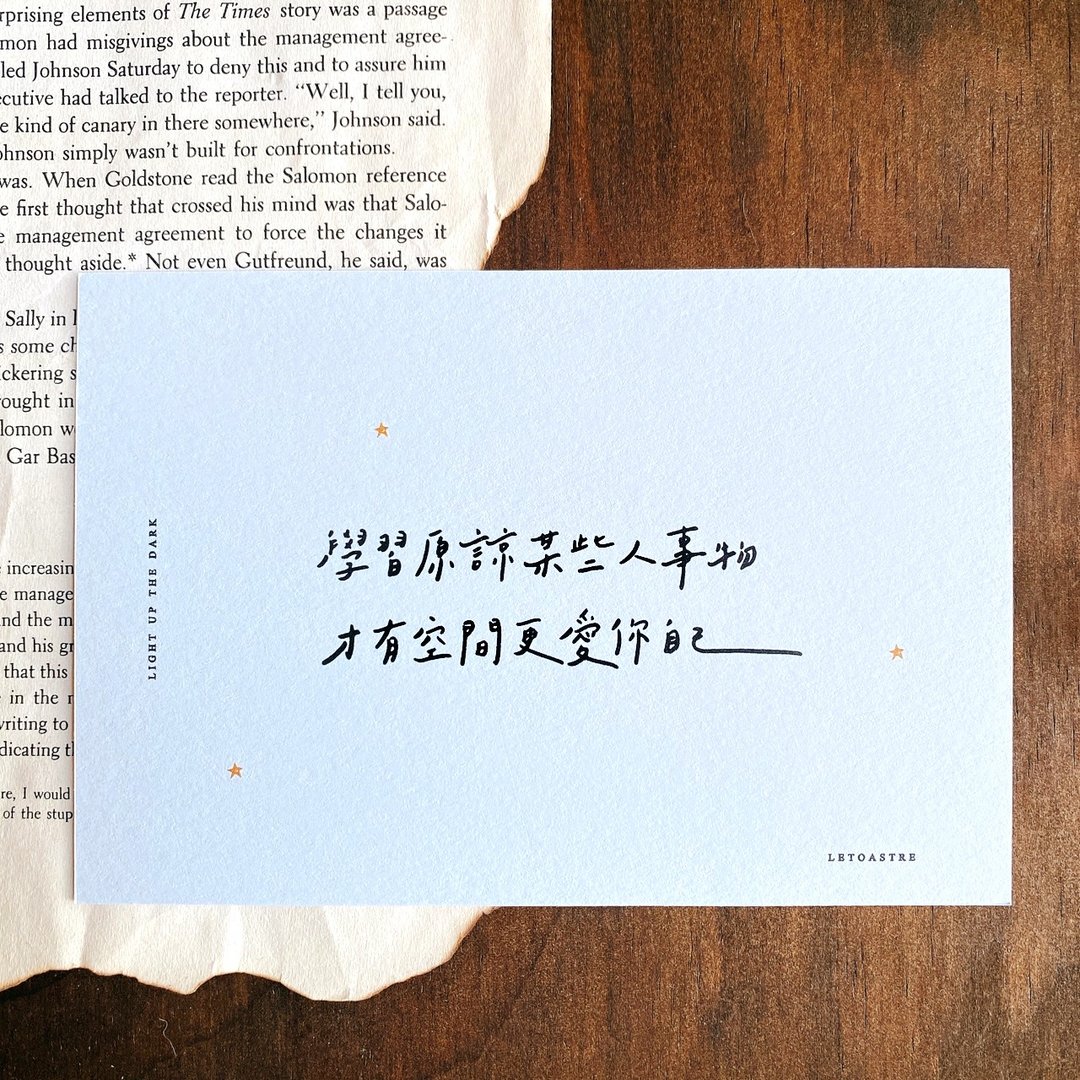 rprising elements of The Times story was a passage
mon had misgivings about the management agree-
led Johnson Saturday to deny this and to assure him
ecutive had talked to the reporter. “Well, I tell you,
e kind of canary in there somewhere,” Johnson said.
ohnson simply wasn’t built for confrontations.
was. When Goldstone read the Salomon reference
e first thought that crossed his mind was that Salo-
e management agreement to force the changes it
thought aside.* Not even Gutfreund, he said, was
Sally in
s some ch
ickering s
rought in
lomon w
Gar Bas
increasin
e manage
nd the m
and his gr
that this
in the r
writing to
dicating th
re, I would
of the stup
LIGHT UP THE DARK
學習原諒某些人事物
才有空間更愛你自己
LETOASTRE